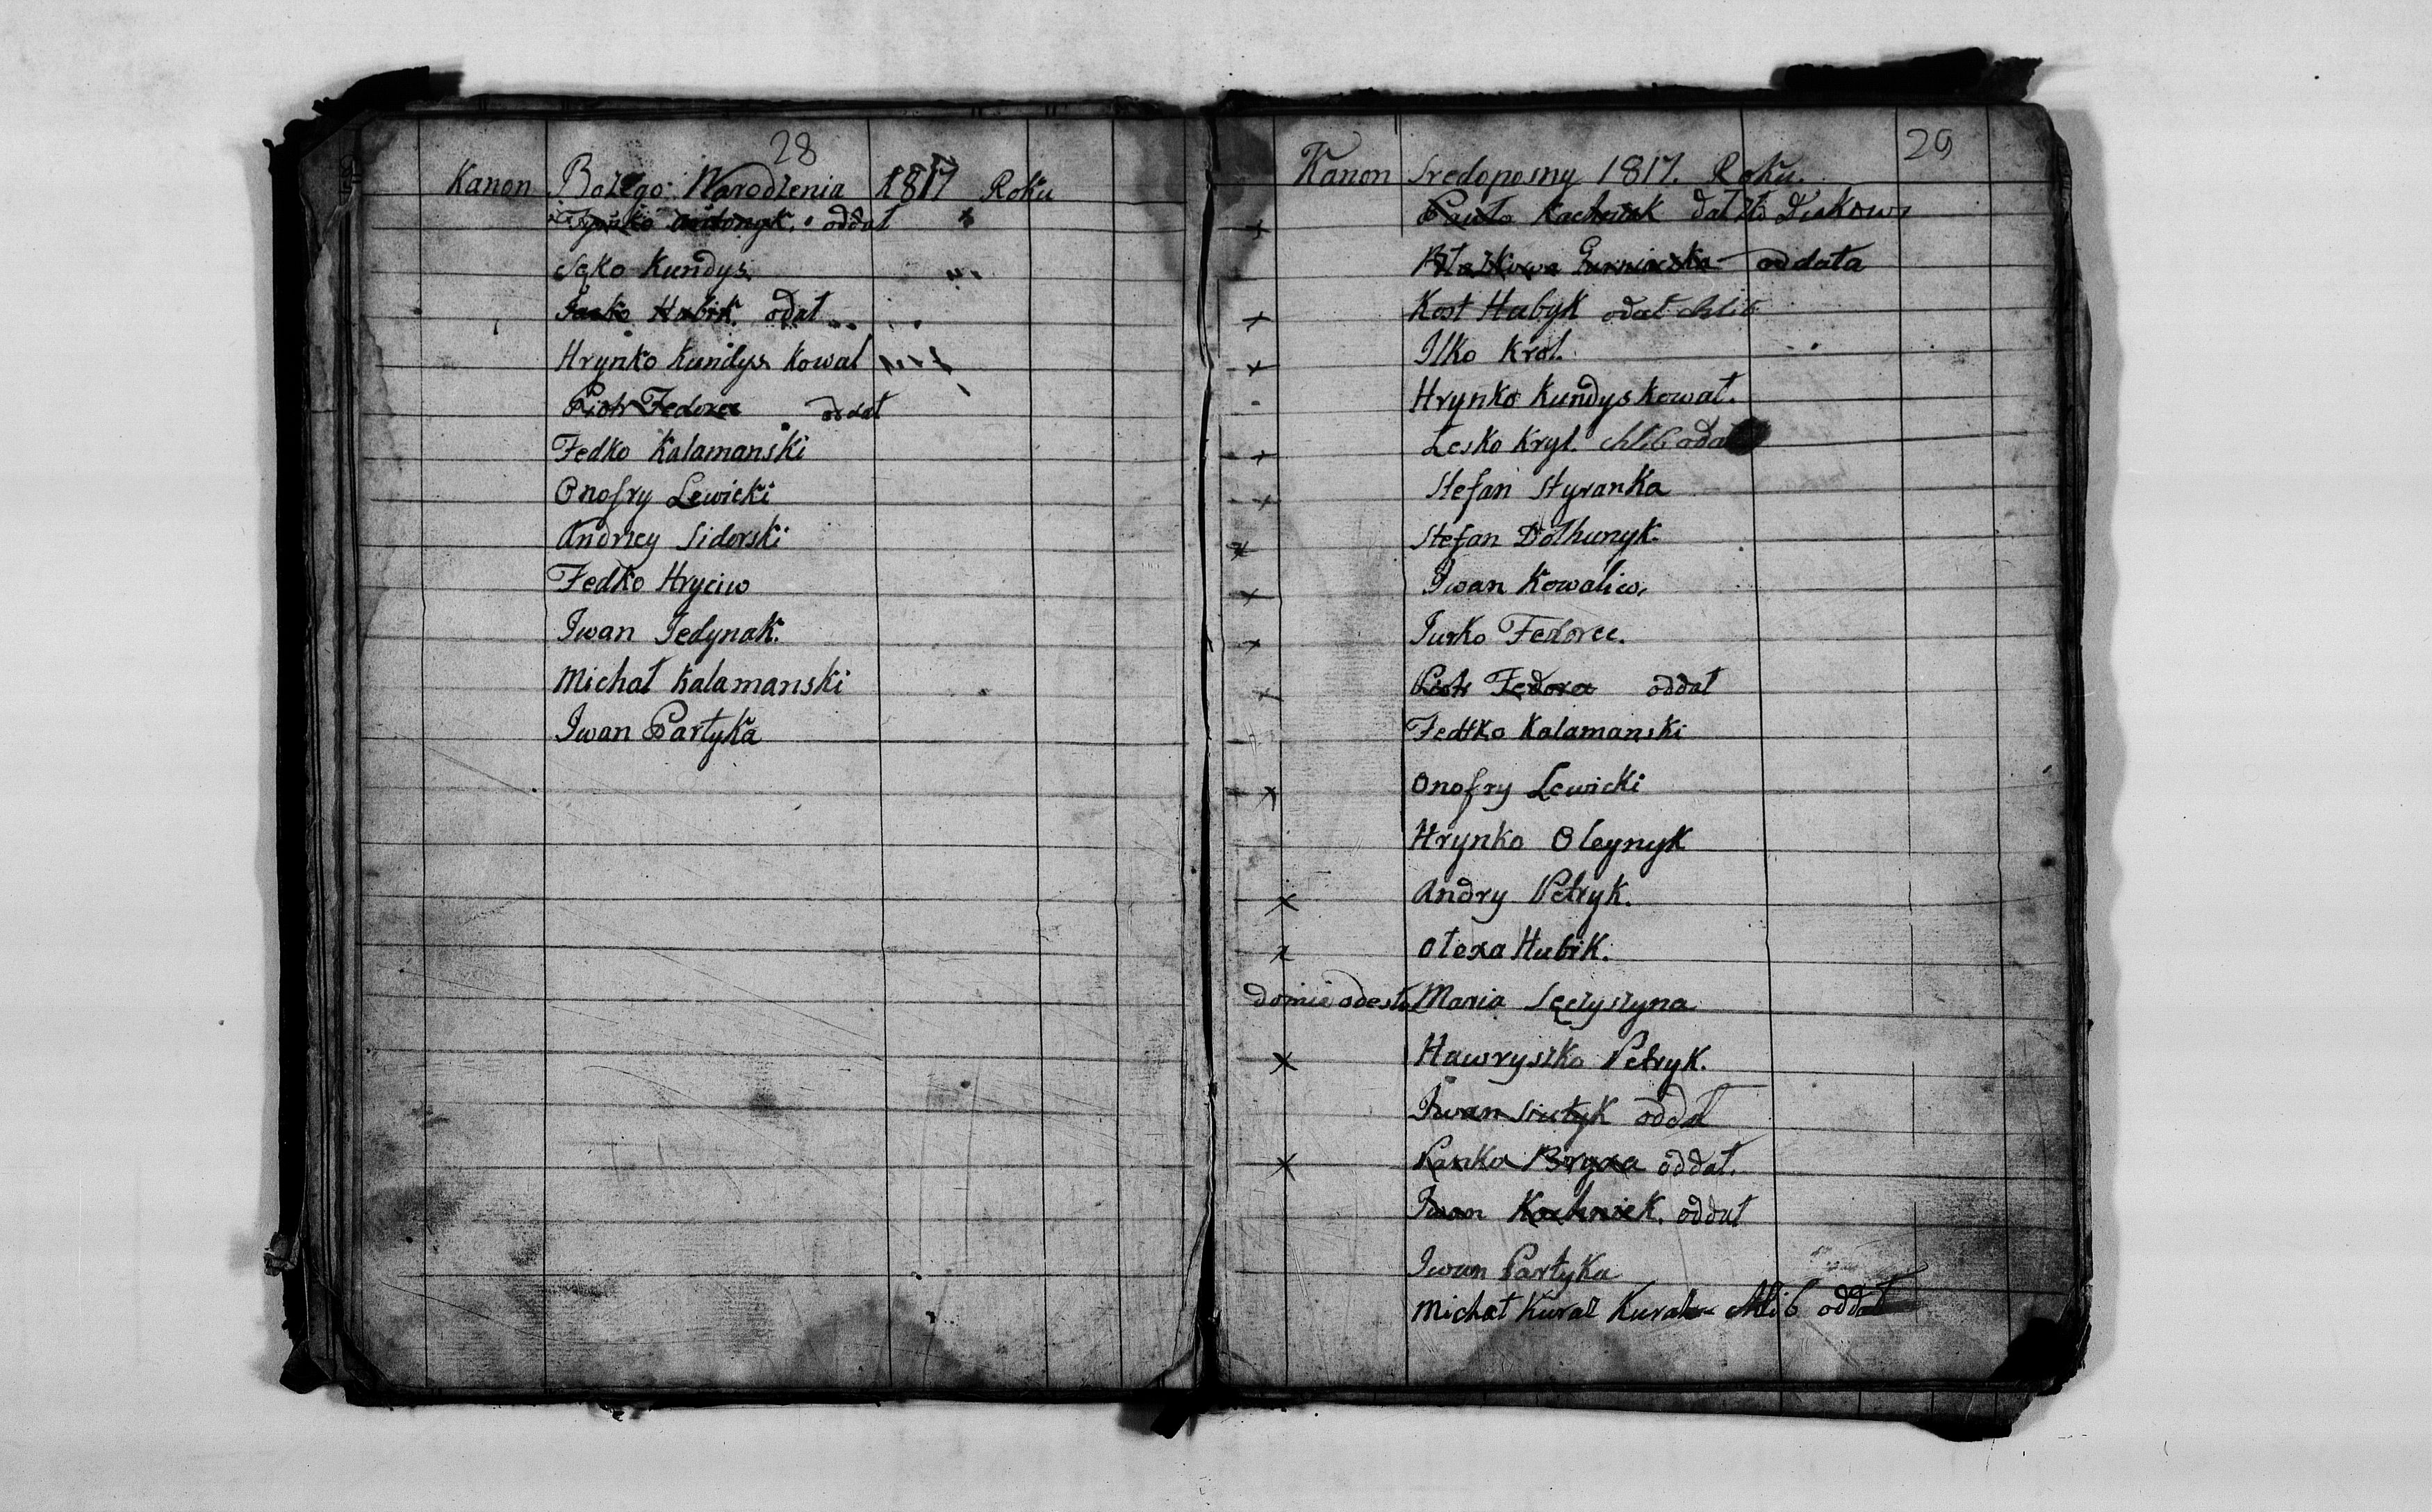 28
Kanon Bożego Narodzenia 1817 Roku
oddał
Sęko Kundys
Jaśko Hubik. odał
Hrynko Kundys Kowal
Piotr Fedorec oddał
Fedko Kalamanski
Onofry Lewicki
Andrzey Sidorski
Fedko Hryciw
Iwan Jedynak.
Michał Kalamanski
Iwan Partyka
29
Kanon Sredoposny 1817. Roku.
Pawło Kachniak dał Diakowi
oddała
Kost Hubyk odał chlib
Ilko Krol.
Hrynko Kundys Kowal.
Lesko Kryl. chlib odał
Stefan Styranka
Stefan Dolhunyk.
Iwan Kowaliw.
Jurko Fedorec.
Piotr Fedorec oddał
Fedko Kalamanski
Onofry Lewicki
Hrynko Oleynyk
Andry Petryk.
Olexa Hubik.
Maria
Hawryszko Petryk.
Iwan oddał
Boryza oddał.
Iwan Kachniek. oddał
Iwan Partyka
Michał Kural Kural chlib oddał